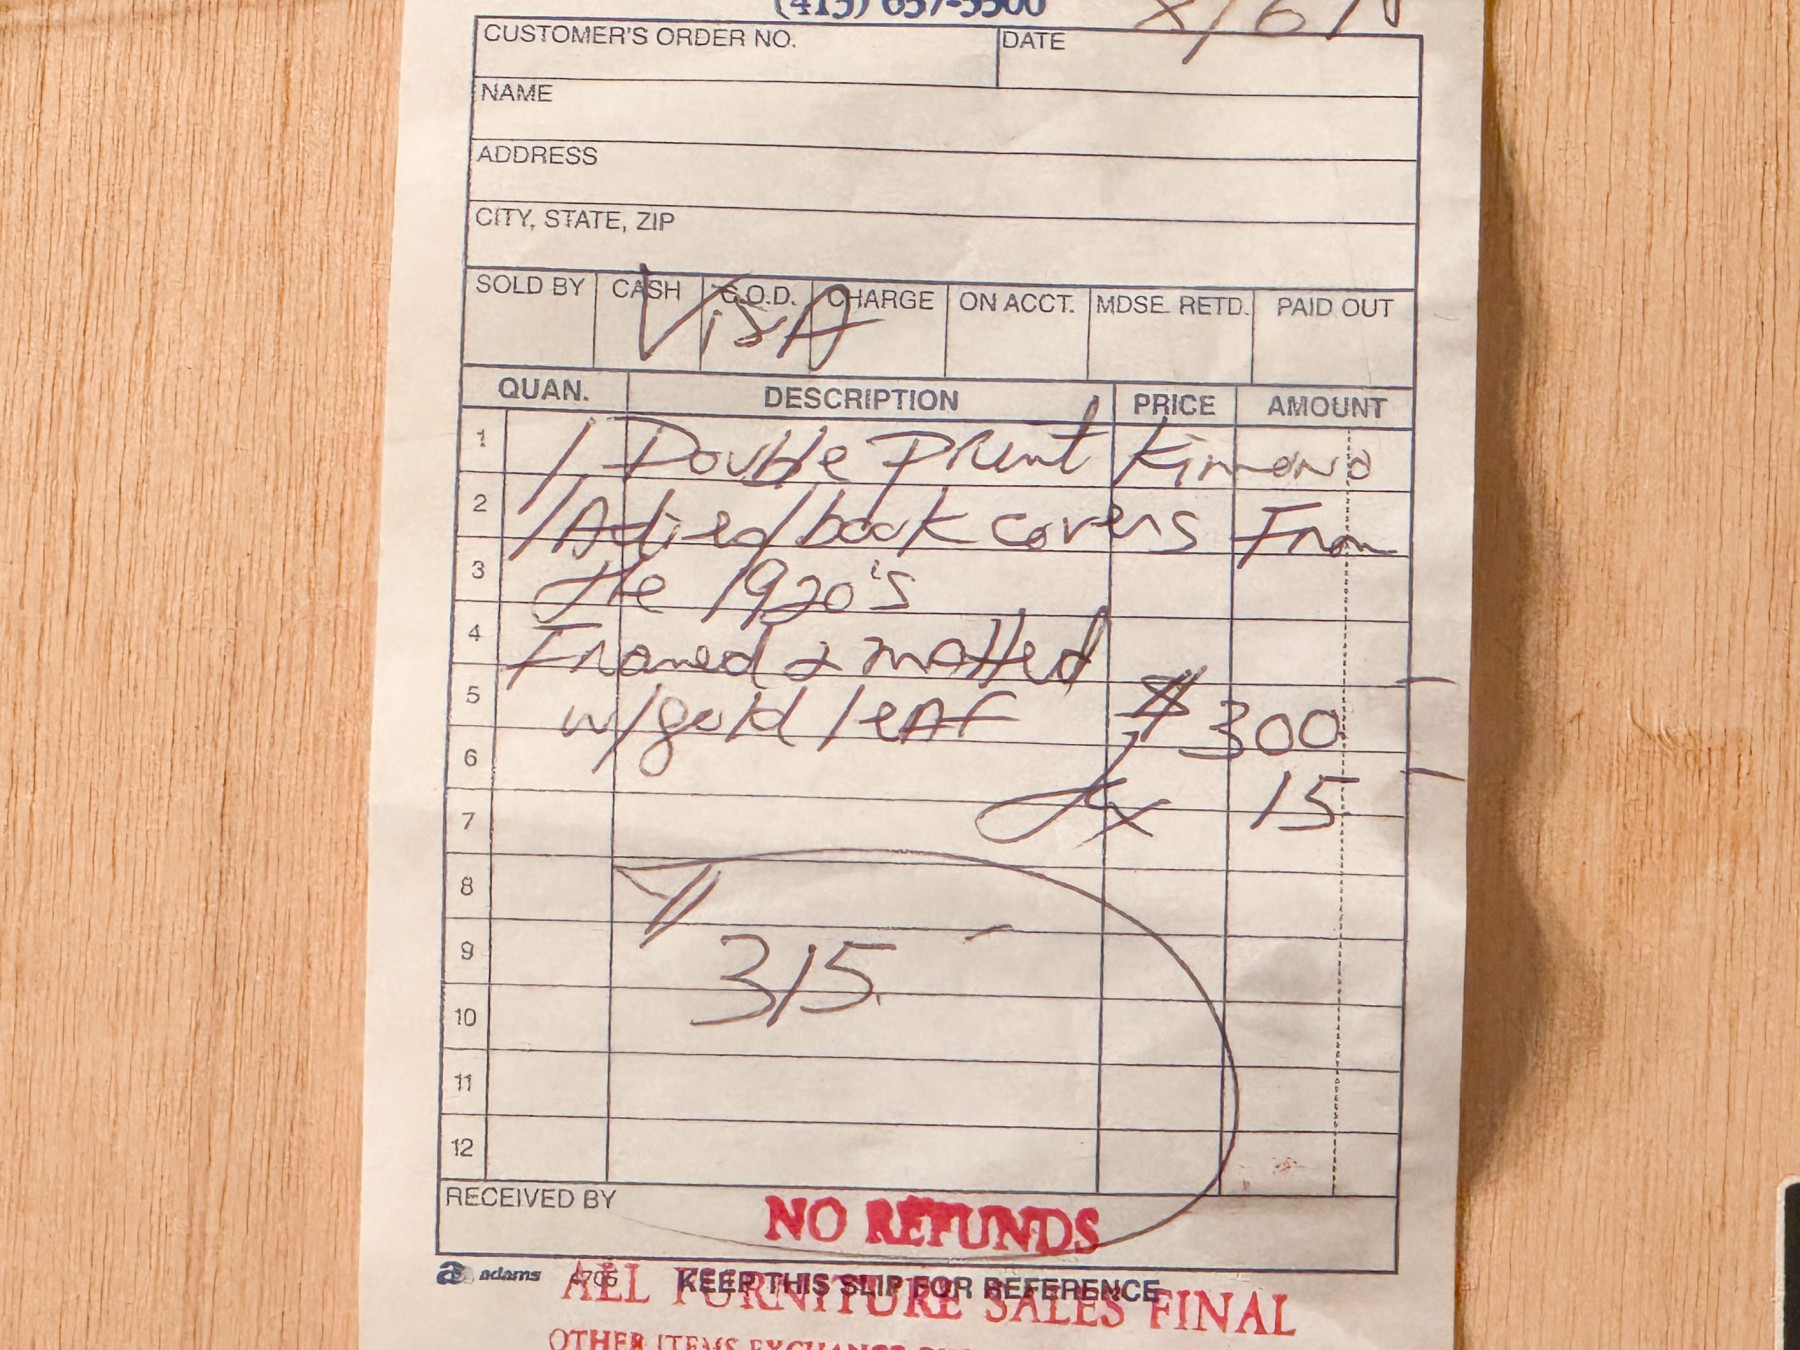 (415) 637-5500
CUSTOMER'S ORDER NO. DATE
NAME
ADDRESS
CITY, STATE, ZIP
SOLD BY CASH C.O.D. CHARGE ON ACCT. MDSE. RETD. PAID OUT
VISA
QUAN. DESCRIPTION PRICE AMOUNT
1 1 Double Print Kimono
2 book covers From
3 the 1920's
4 Framed & matted
5 w/gold leaf $300
6
7 tx 15
8 $
9 315
10
11
12
RECEIVED BY
NO REFUNDS
adams 4705 KEEP THIS SLIP FOR REFERENCE
ALL FURNITURE SALES FINAL
OTHER ITEMS EXCHANGE